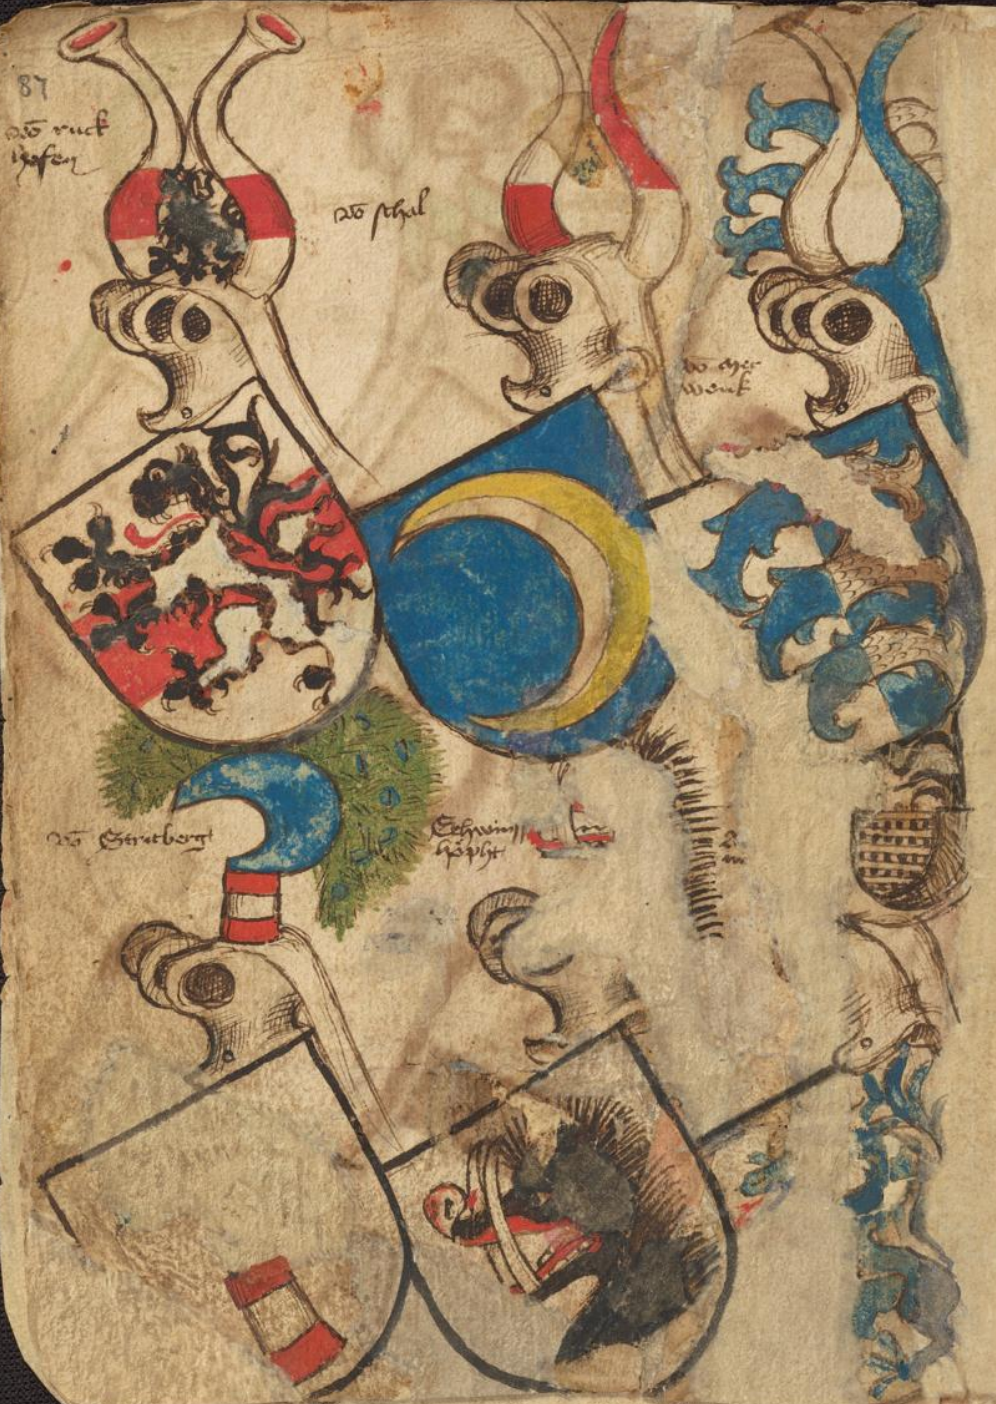 87
vō ruck
hofen
vō schal
vō mer
wenk
vō Stretberg
Schwin
höpht